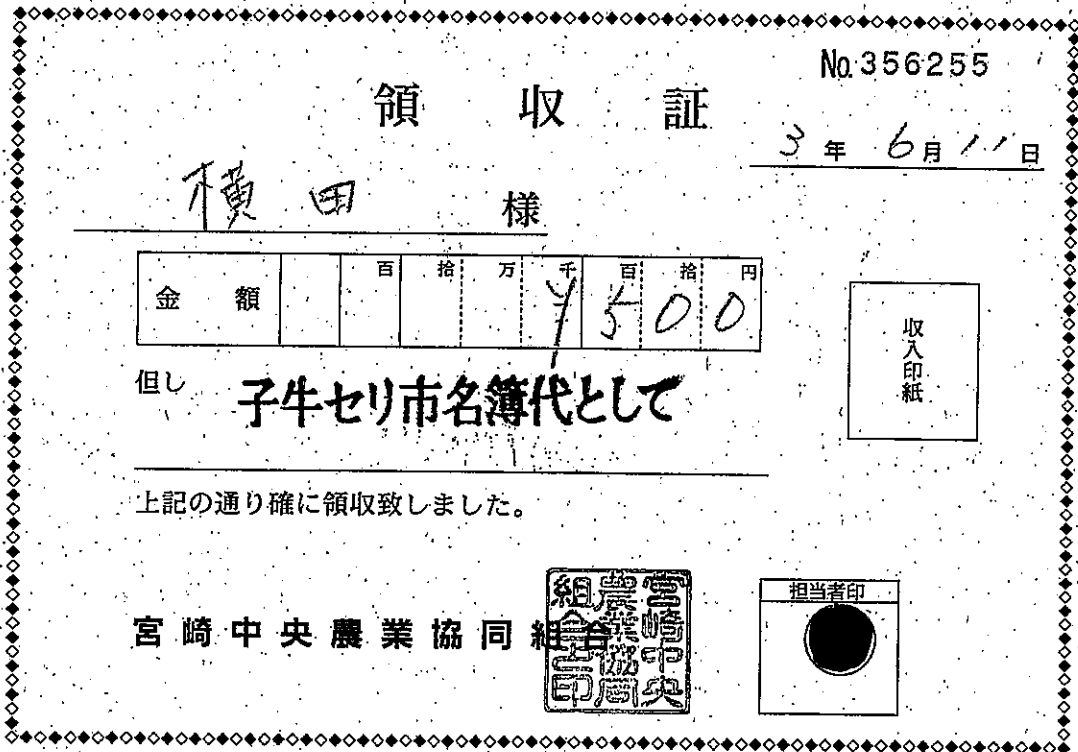 No.356255
領収証
3年 6月11日
横田 様
金額 百 拾 万 千 百 拾 円
¥500
但し 子牛セリ市名簿代として
収入印紙
上記の通り確に領収致しました。
宮崎中央農業協同組合
宮崎中央農業協同組合之印
担当者印